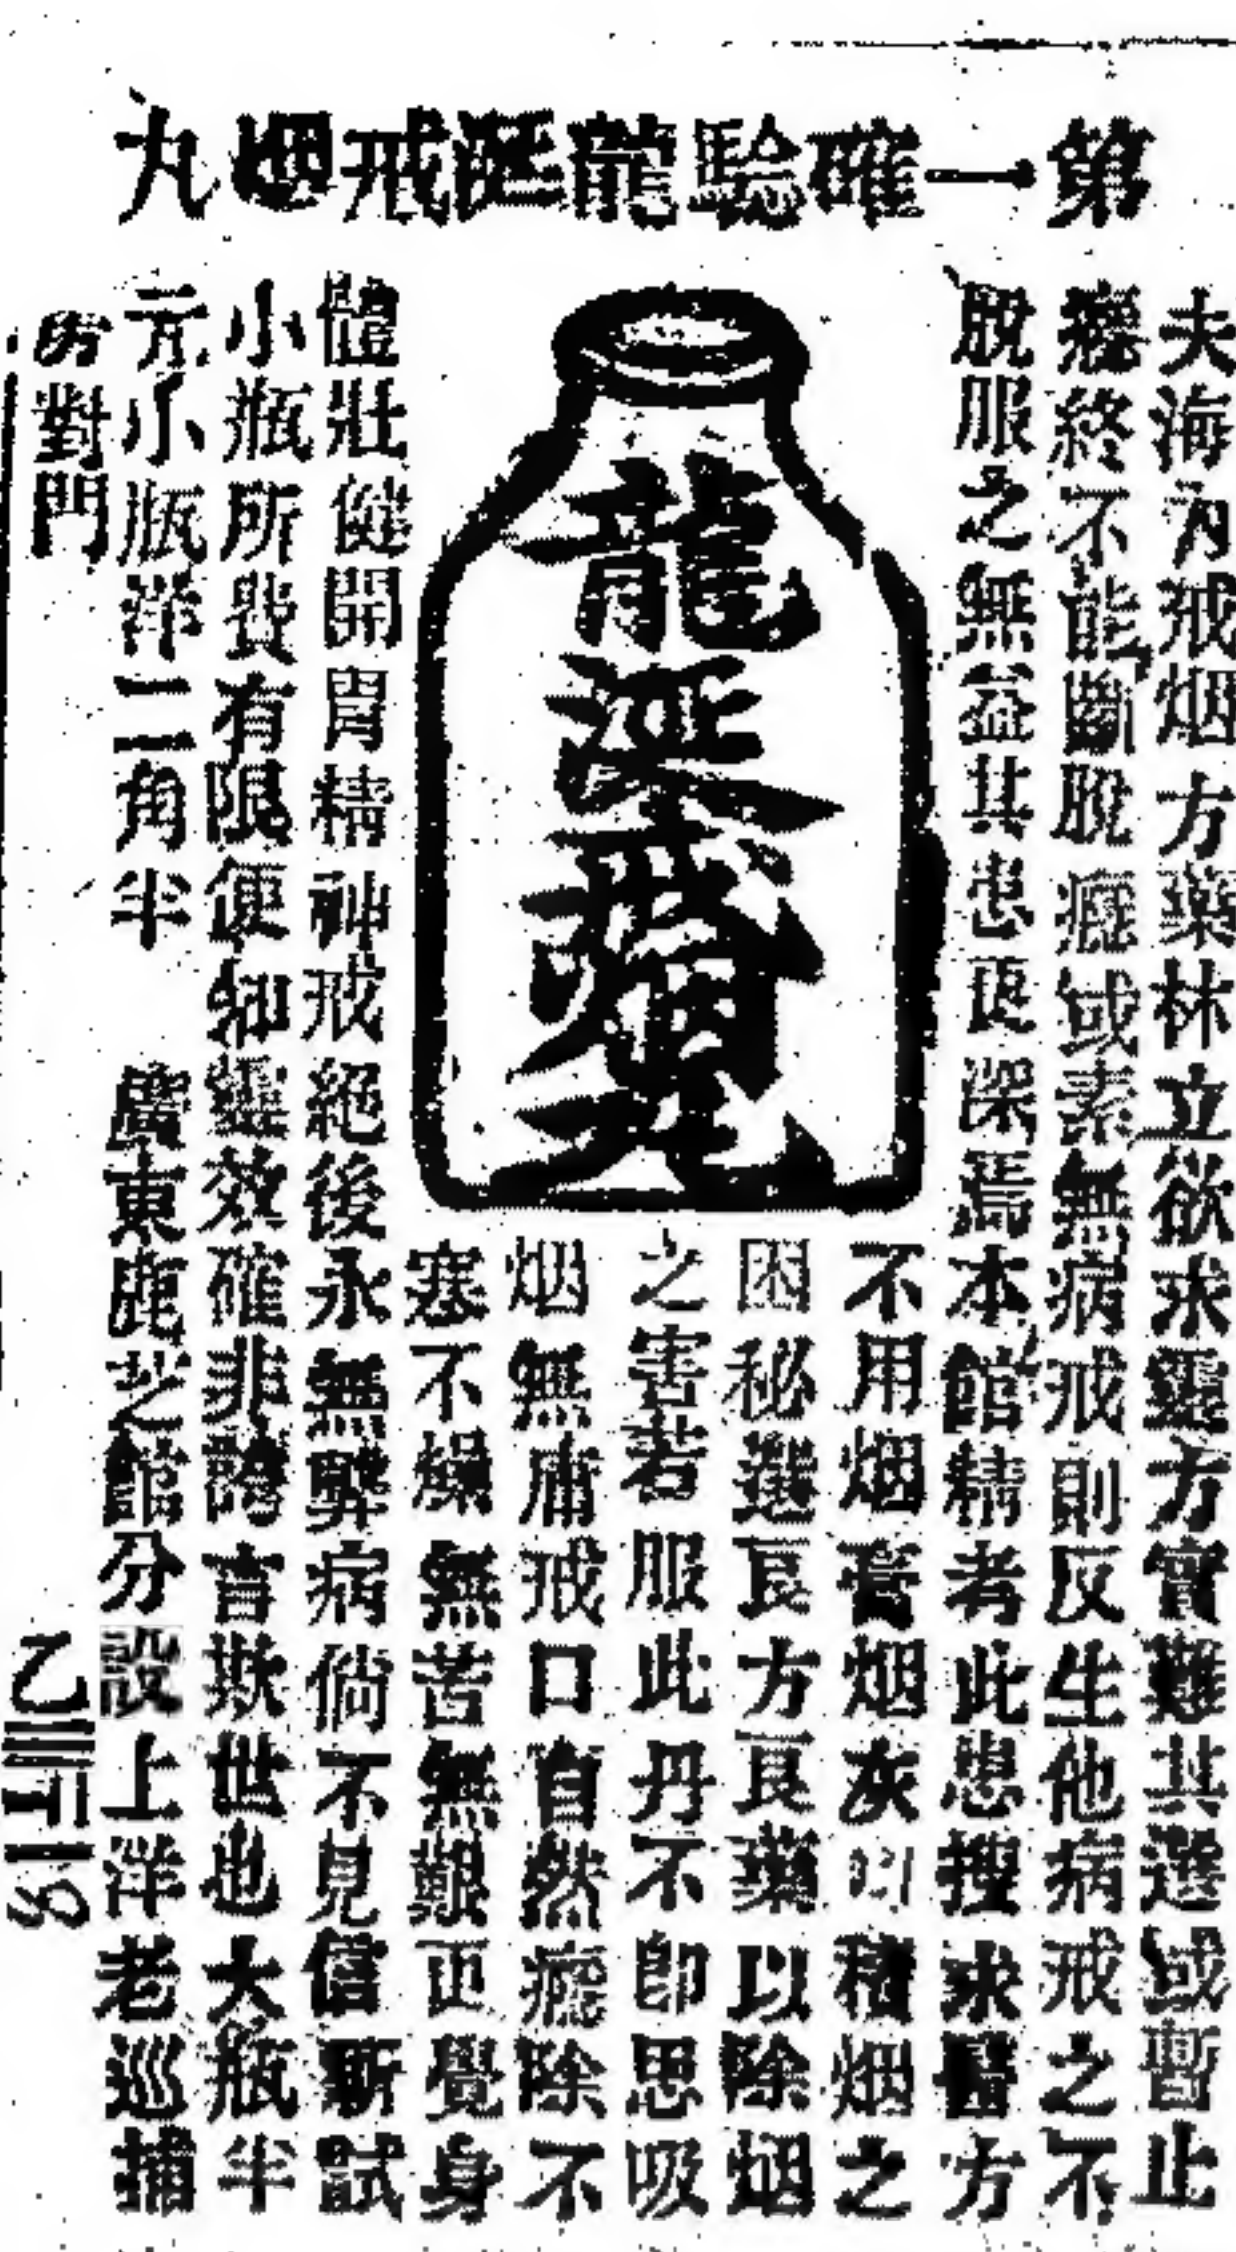 第一確驗龍涎戒烟丸
龍涎戒烟丸
夫海內戒烟方藥林立欲求靈方實難其選或暫止
癮終不能斷脫癮或素無病戒則反生他病戒之不
脫服之無益其患更深焉本館精考此患搜求醫方
不用烟膏烟灰 積烟之
困秘選良方良藥以除烟
之害若服此丹不即思吸
烟無庸戒口自然癮除不
塞不燥無苦無艱更覺身
體壯健開胃精神戒絕後永無弊病倘不見信斯試
小瓶所費有限便知靈效確非誇言欺世也大瓶半
元小瓶洋二角半 廣東鹿芝館分設上洋老巡捕
房對門